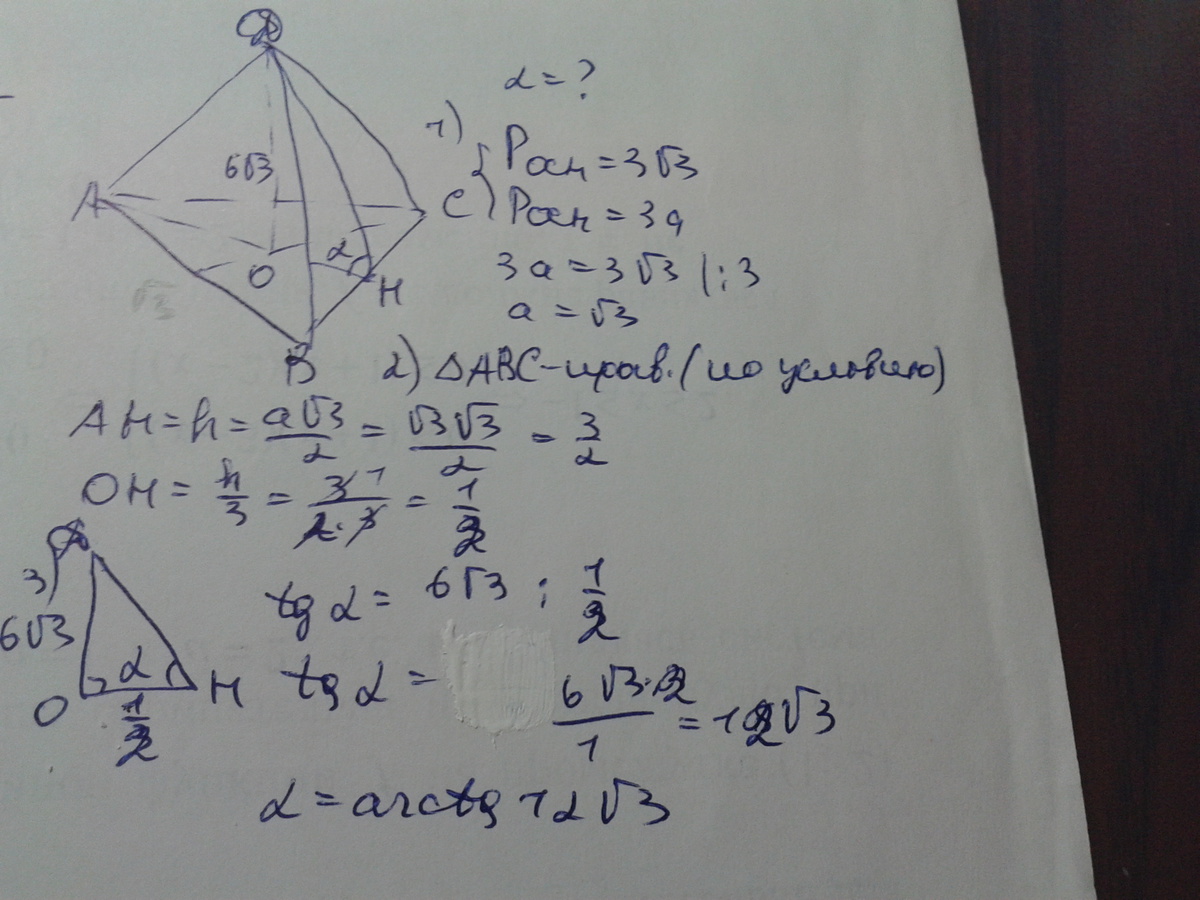 D
6√3
A
C
O
α
H
B
α = ?
1)
{ Pосн = 3√3
Pосн = 3a
3a = 3√3 | : 3
a = √3
2) ΔABC - прав. (по условию)
AH = h = a√3/2 = √3√3/2 = 3/2
OH = h/3 = 3/(2·3) = 1/2
3)
6√3
α
O
H
1/2
tg α = 6√3 : 1/2
tg α = 6√3·2/1 = 12√3
α = arctg 12√3